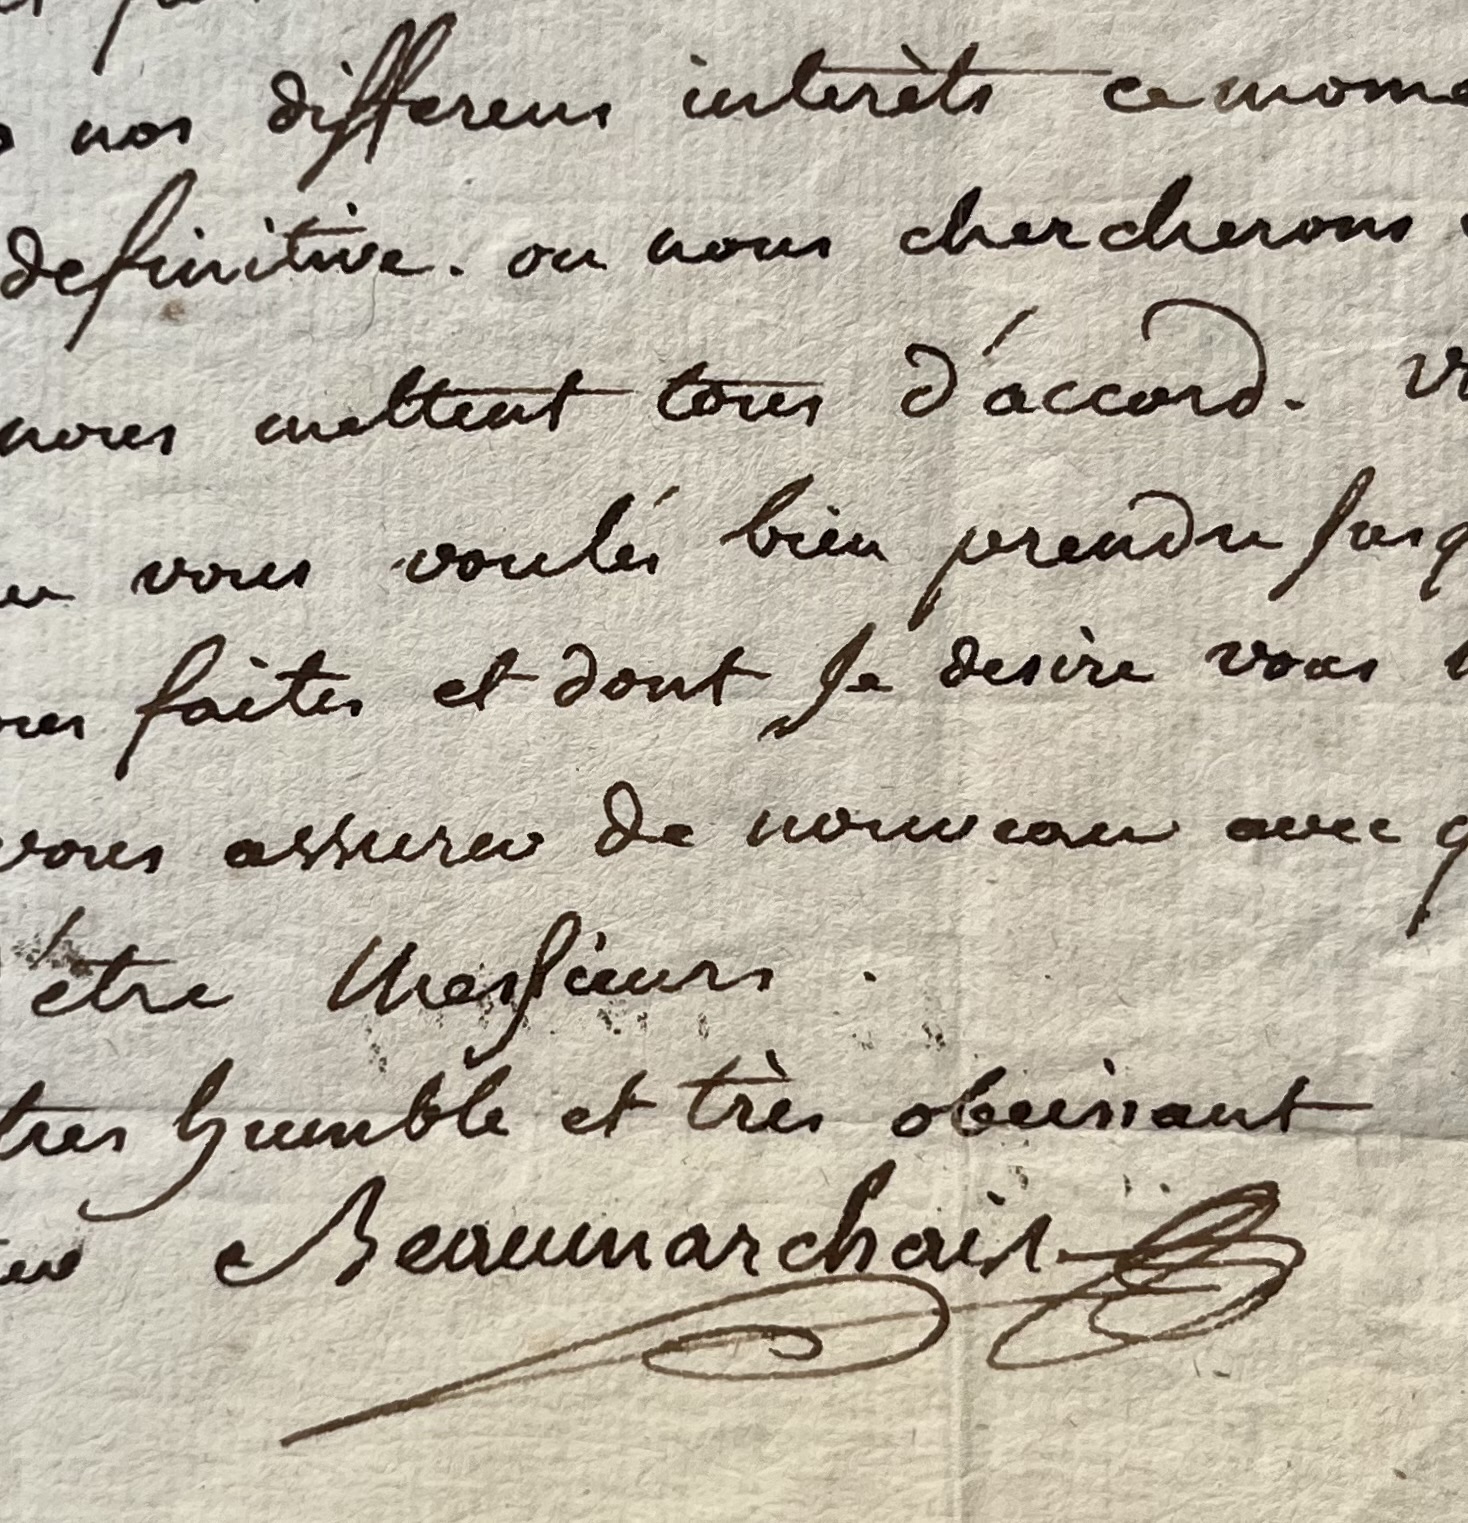 nos differens interèts ce mome
definitive. ou nous chercherons
nous mettent tous d'accord.
vous voulés bien prendre jusq
faites et dont Je desire vous
vous assurer de nouveau avec q
être Messieurs.
tres humble et très obeissant
Beaumarchais